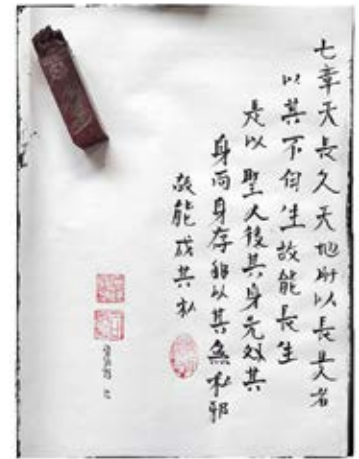 七章天長久天地所以長久者
以其不自生故能長生
是以聖人後其身先外其
身而身存非以其無私邪
故能成其私